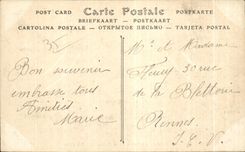 POST CARD Carte Postale POSTKARTE
BRIEFKAART — ОТКРЫТОЕ ПИСЬМО — POSTKARTAAN
CARTOLINA POSTALE TARJETA POSTAL
35
Bon souvenir
embrasse tous
Amitiés
Marie
Mr et Madame
Fleury 30 rue
de la
Rennes
I. et V.